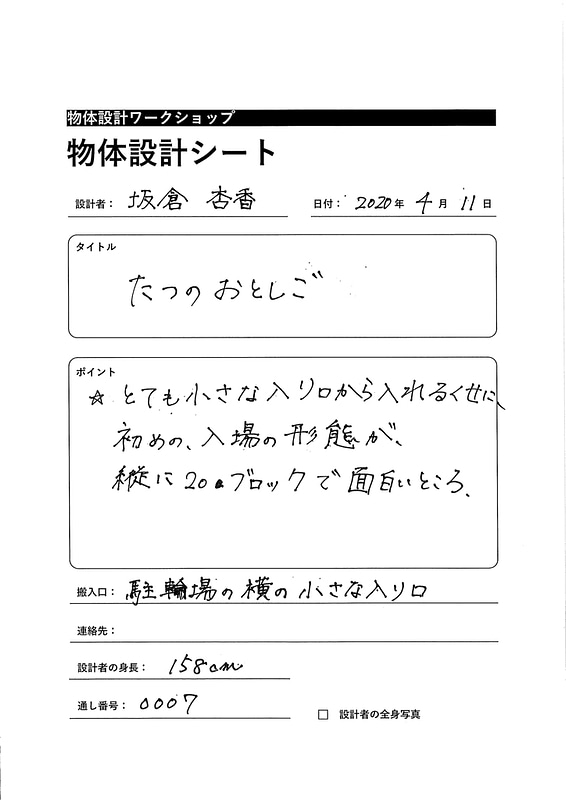 物体設計ワークショップ
物体設計シート
設計者： 坂倉 杏香 日付： 2020年 4月 11日
タイトル
たつのおとしご
ポイント
☆ とても小さな入り口から入れるくせに、
初めの、入場の形態が、
縦に20のブロックで面白いところ、
搬入口： 駐輪場の横の小さな入り口
連絡先：
設計者の身長： 158cm
通し番号： 0007
□ 設計者の全身写真